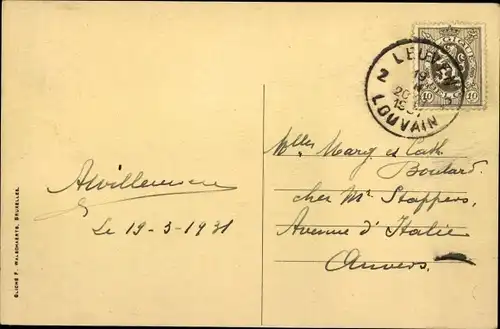 LEUVEN
2
19
20
1931
LOUVAIN
BELGIQUE
40 40
Mlles Marg et Cath.
Boulard.
cher Mr Stappers,
Avenue d'Italie
Anvers.
Le 19-3-1931
CLICHÉ F. WALSCHAERTS, BRUXELLES.